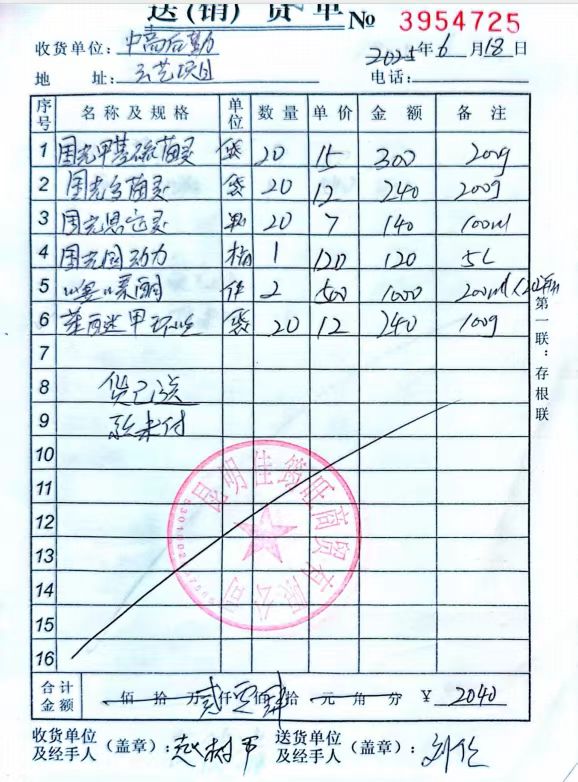 送(销)货单 № 3954725
收货单位: 中高后勤 2025年6月18日
地 址: 云艺项目 电话:
序号 名称及规格 单位 数量 单价 金额 备注
1 国光甲基硫菌灵 袋 20 15 300 200g
2 国光多菌灵 袋 20 12 240 200g
3 国光 20 7 140 100ml
4 国光园动力 桶 1 120 120 5L
5 噻嗪酮 件 2 500 1000 200ml×20
6 苯醚甲环唑 袋 20 12 240 100g
7
8 货已送
9 款未付
10
11
12
13
14
15
16
第一联:存根联
昆明佳 商贸有限公司
合计金额 佰拾万贰仟零佰肆拾元角分 ¥ 2040
收货单位及经手人(盖章): 赵树 送货单位及经手人(盖章): 刘